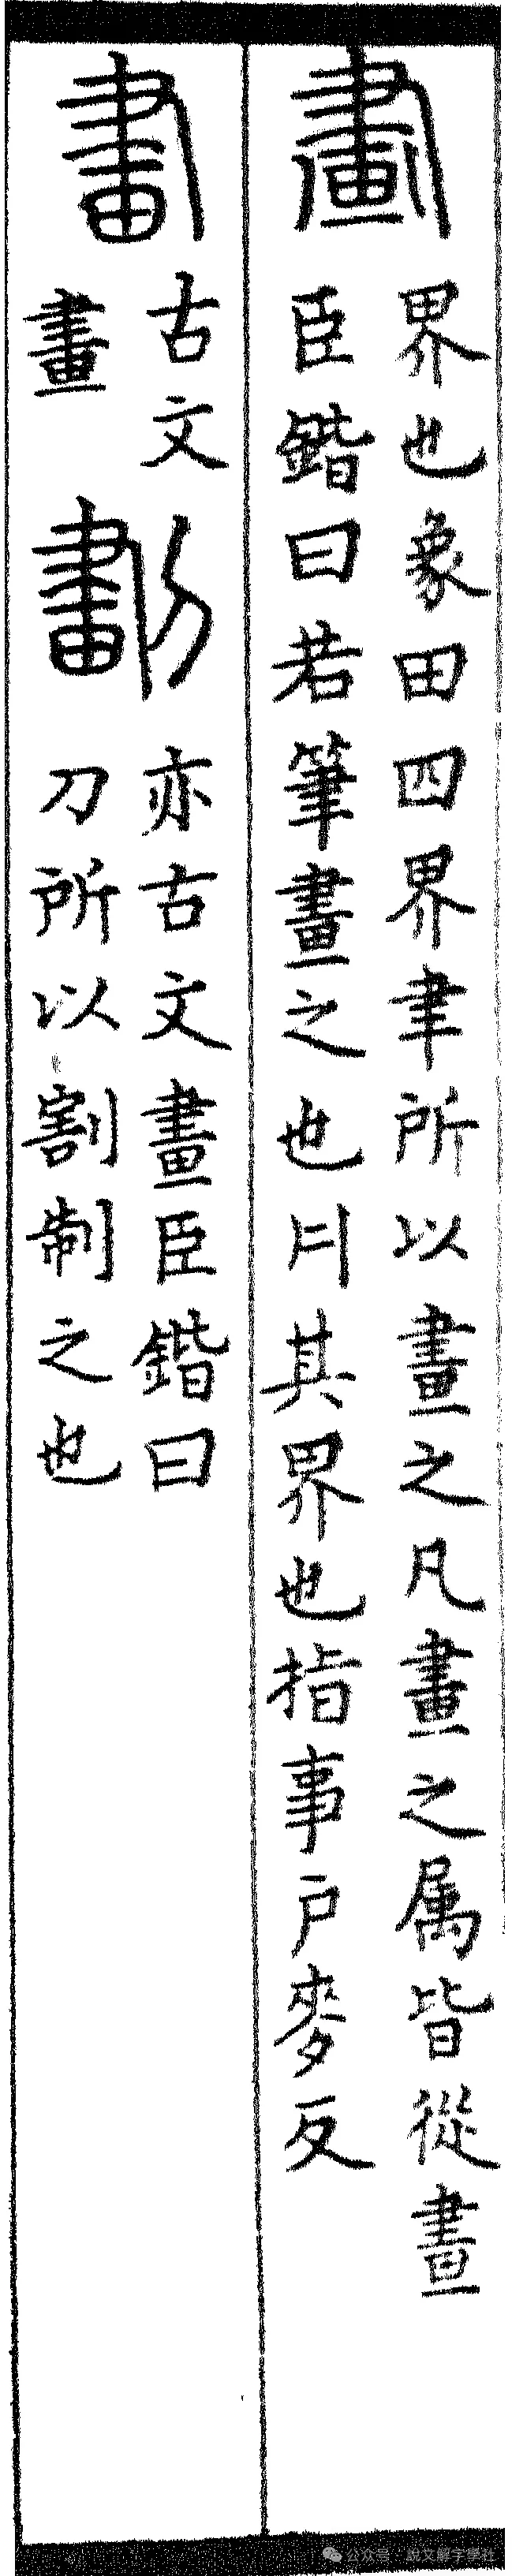 畫
界也象田四界聿所以畫之凡畫之属皆從畫
臣鍇曰若筆畫之也𠁣其界也指事户麥反
畫
古文
畫
劃
亦古文畫臣鍇曰
刀所以割制之也
公众号·说文解字學社